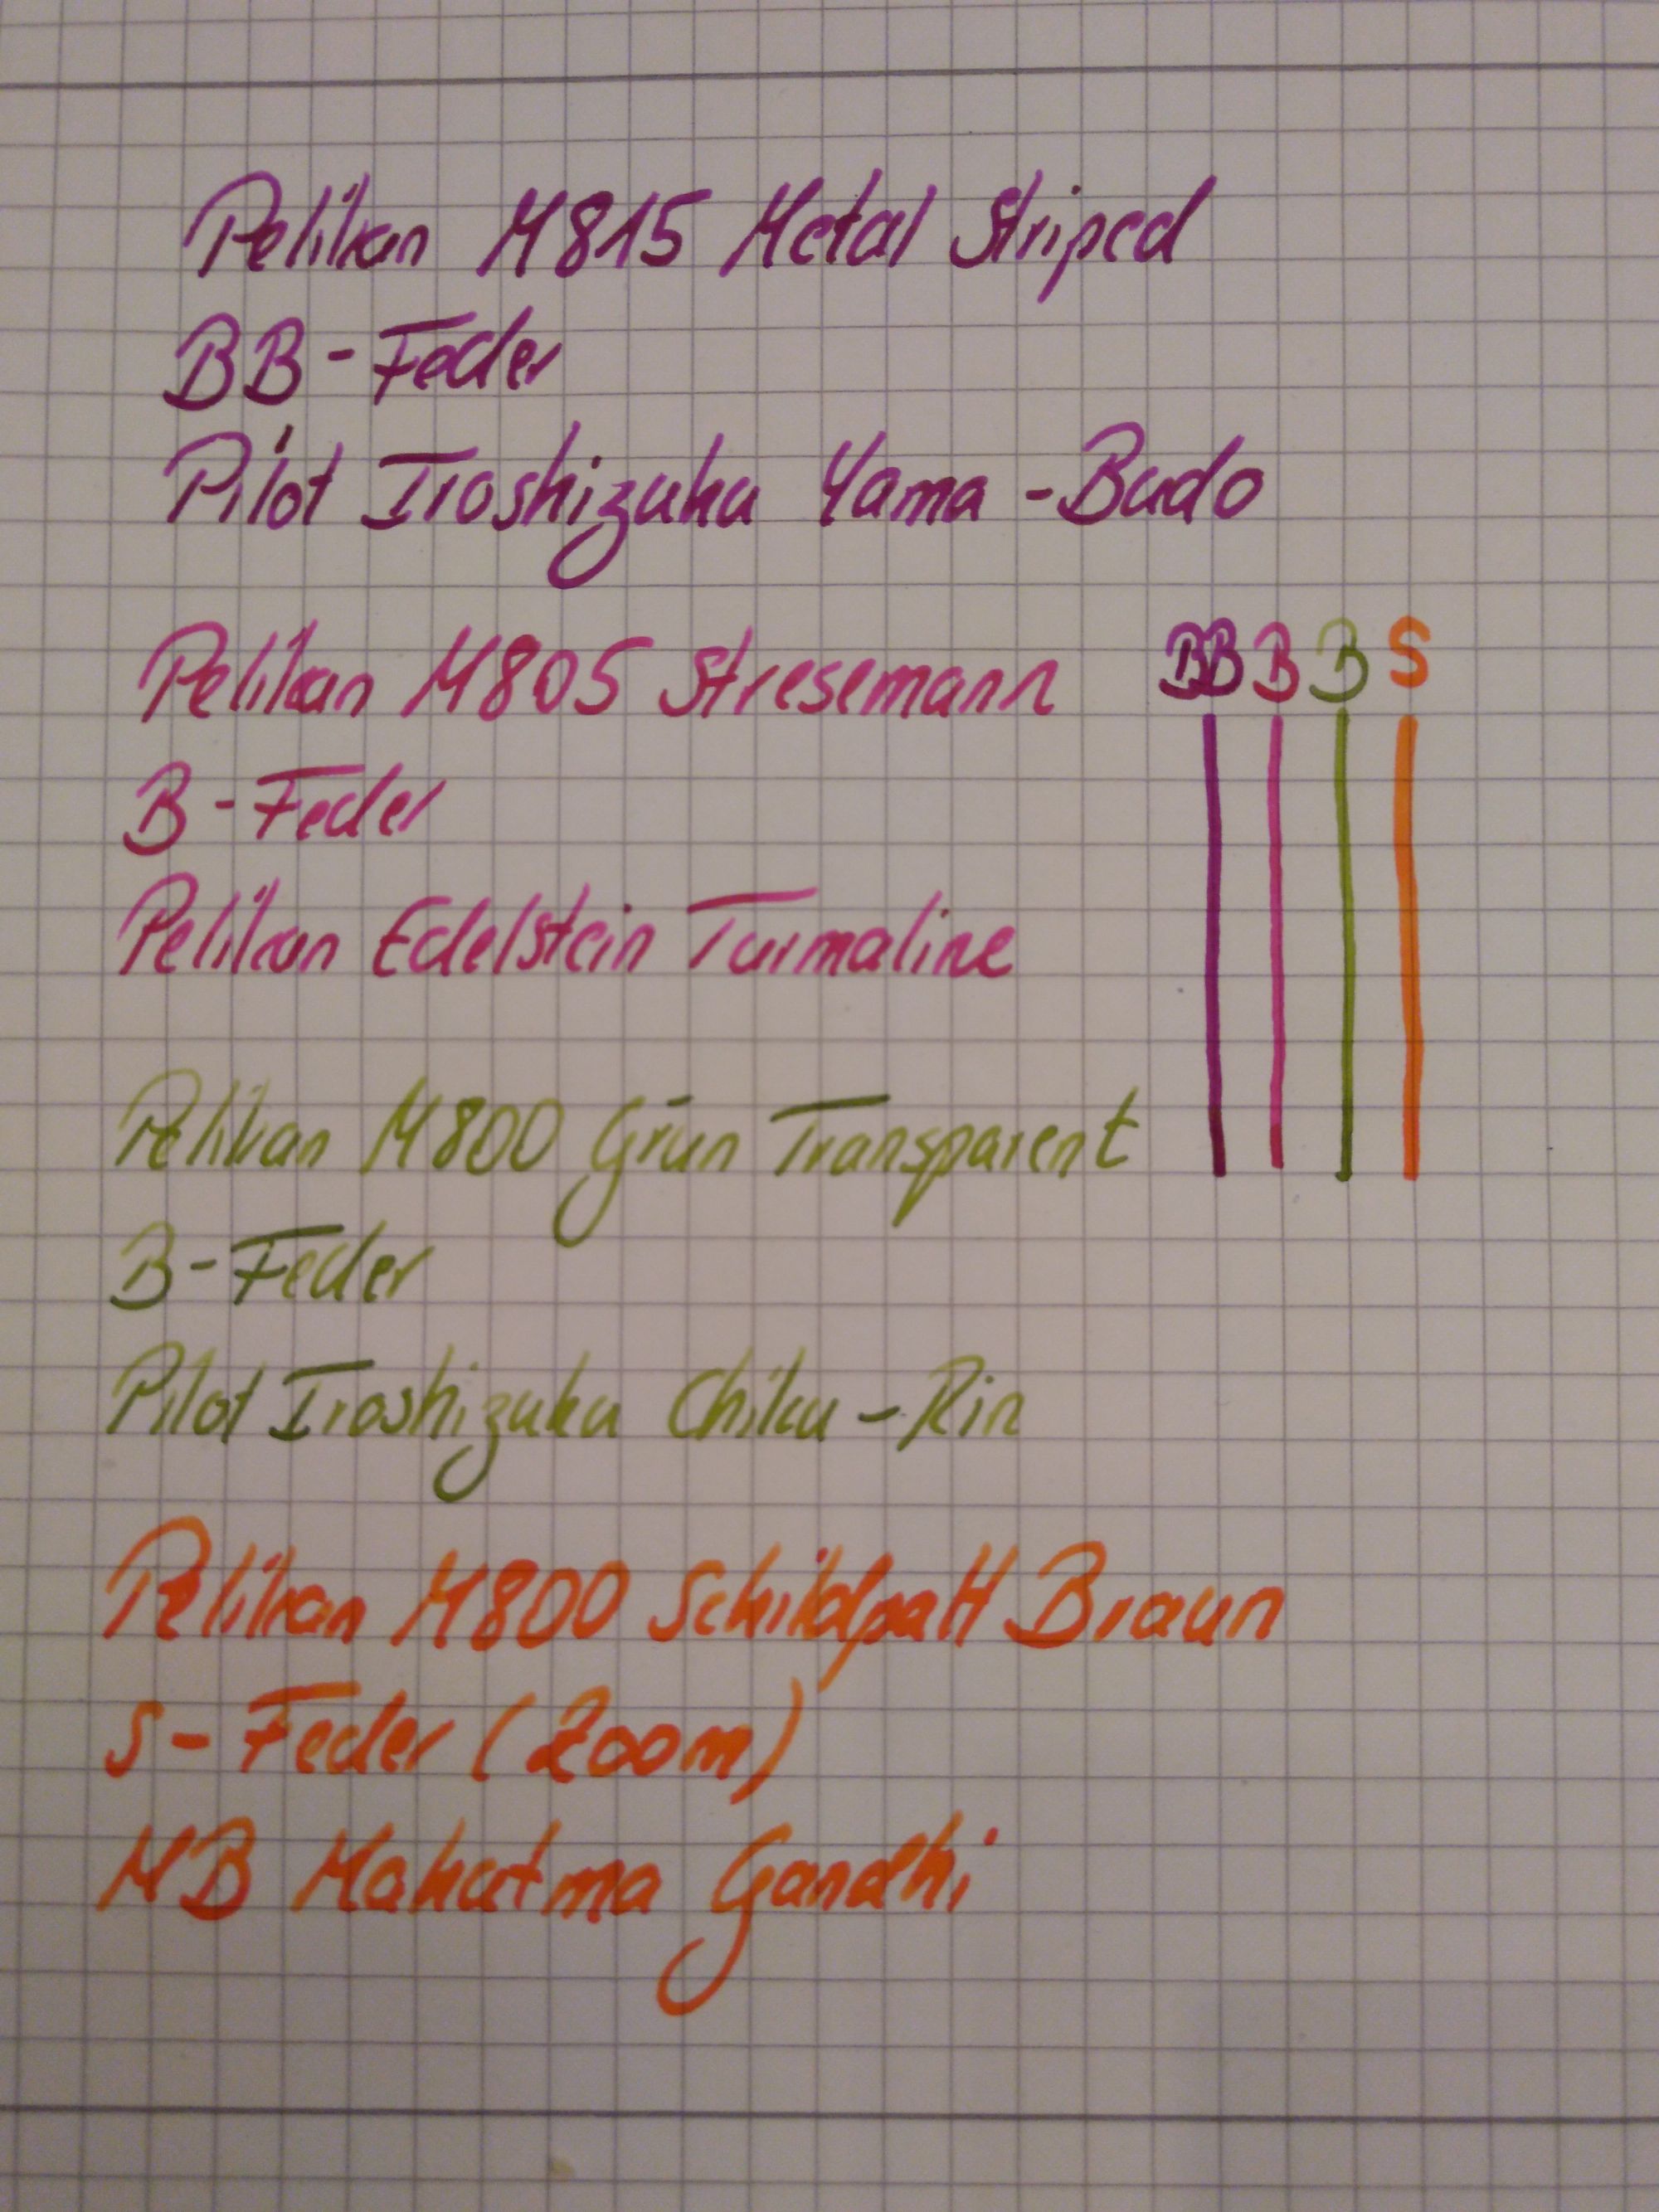 Pelikan M815 Metal Striped
BB-Feder
Pilot Iroshizuku Yama-Budo
Pelikan M805 Stresemann
B-Feder
Pelikan Edelstein Turmaline
BB B B S
Pelikan M800 Grün Transparent
B-Feder
Pilot Iroshizuku Chiku-Rin
Pelikan M800 Schildpatt Braun
S-Feder (Zoom)
MB Mahatma Gandhi